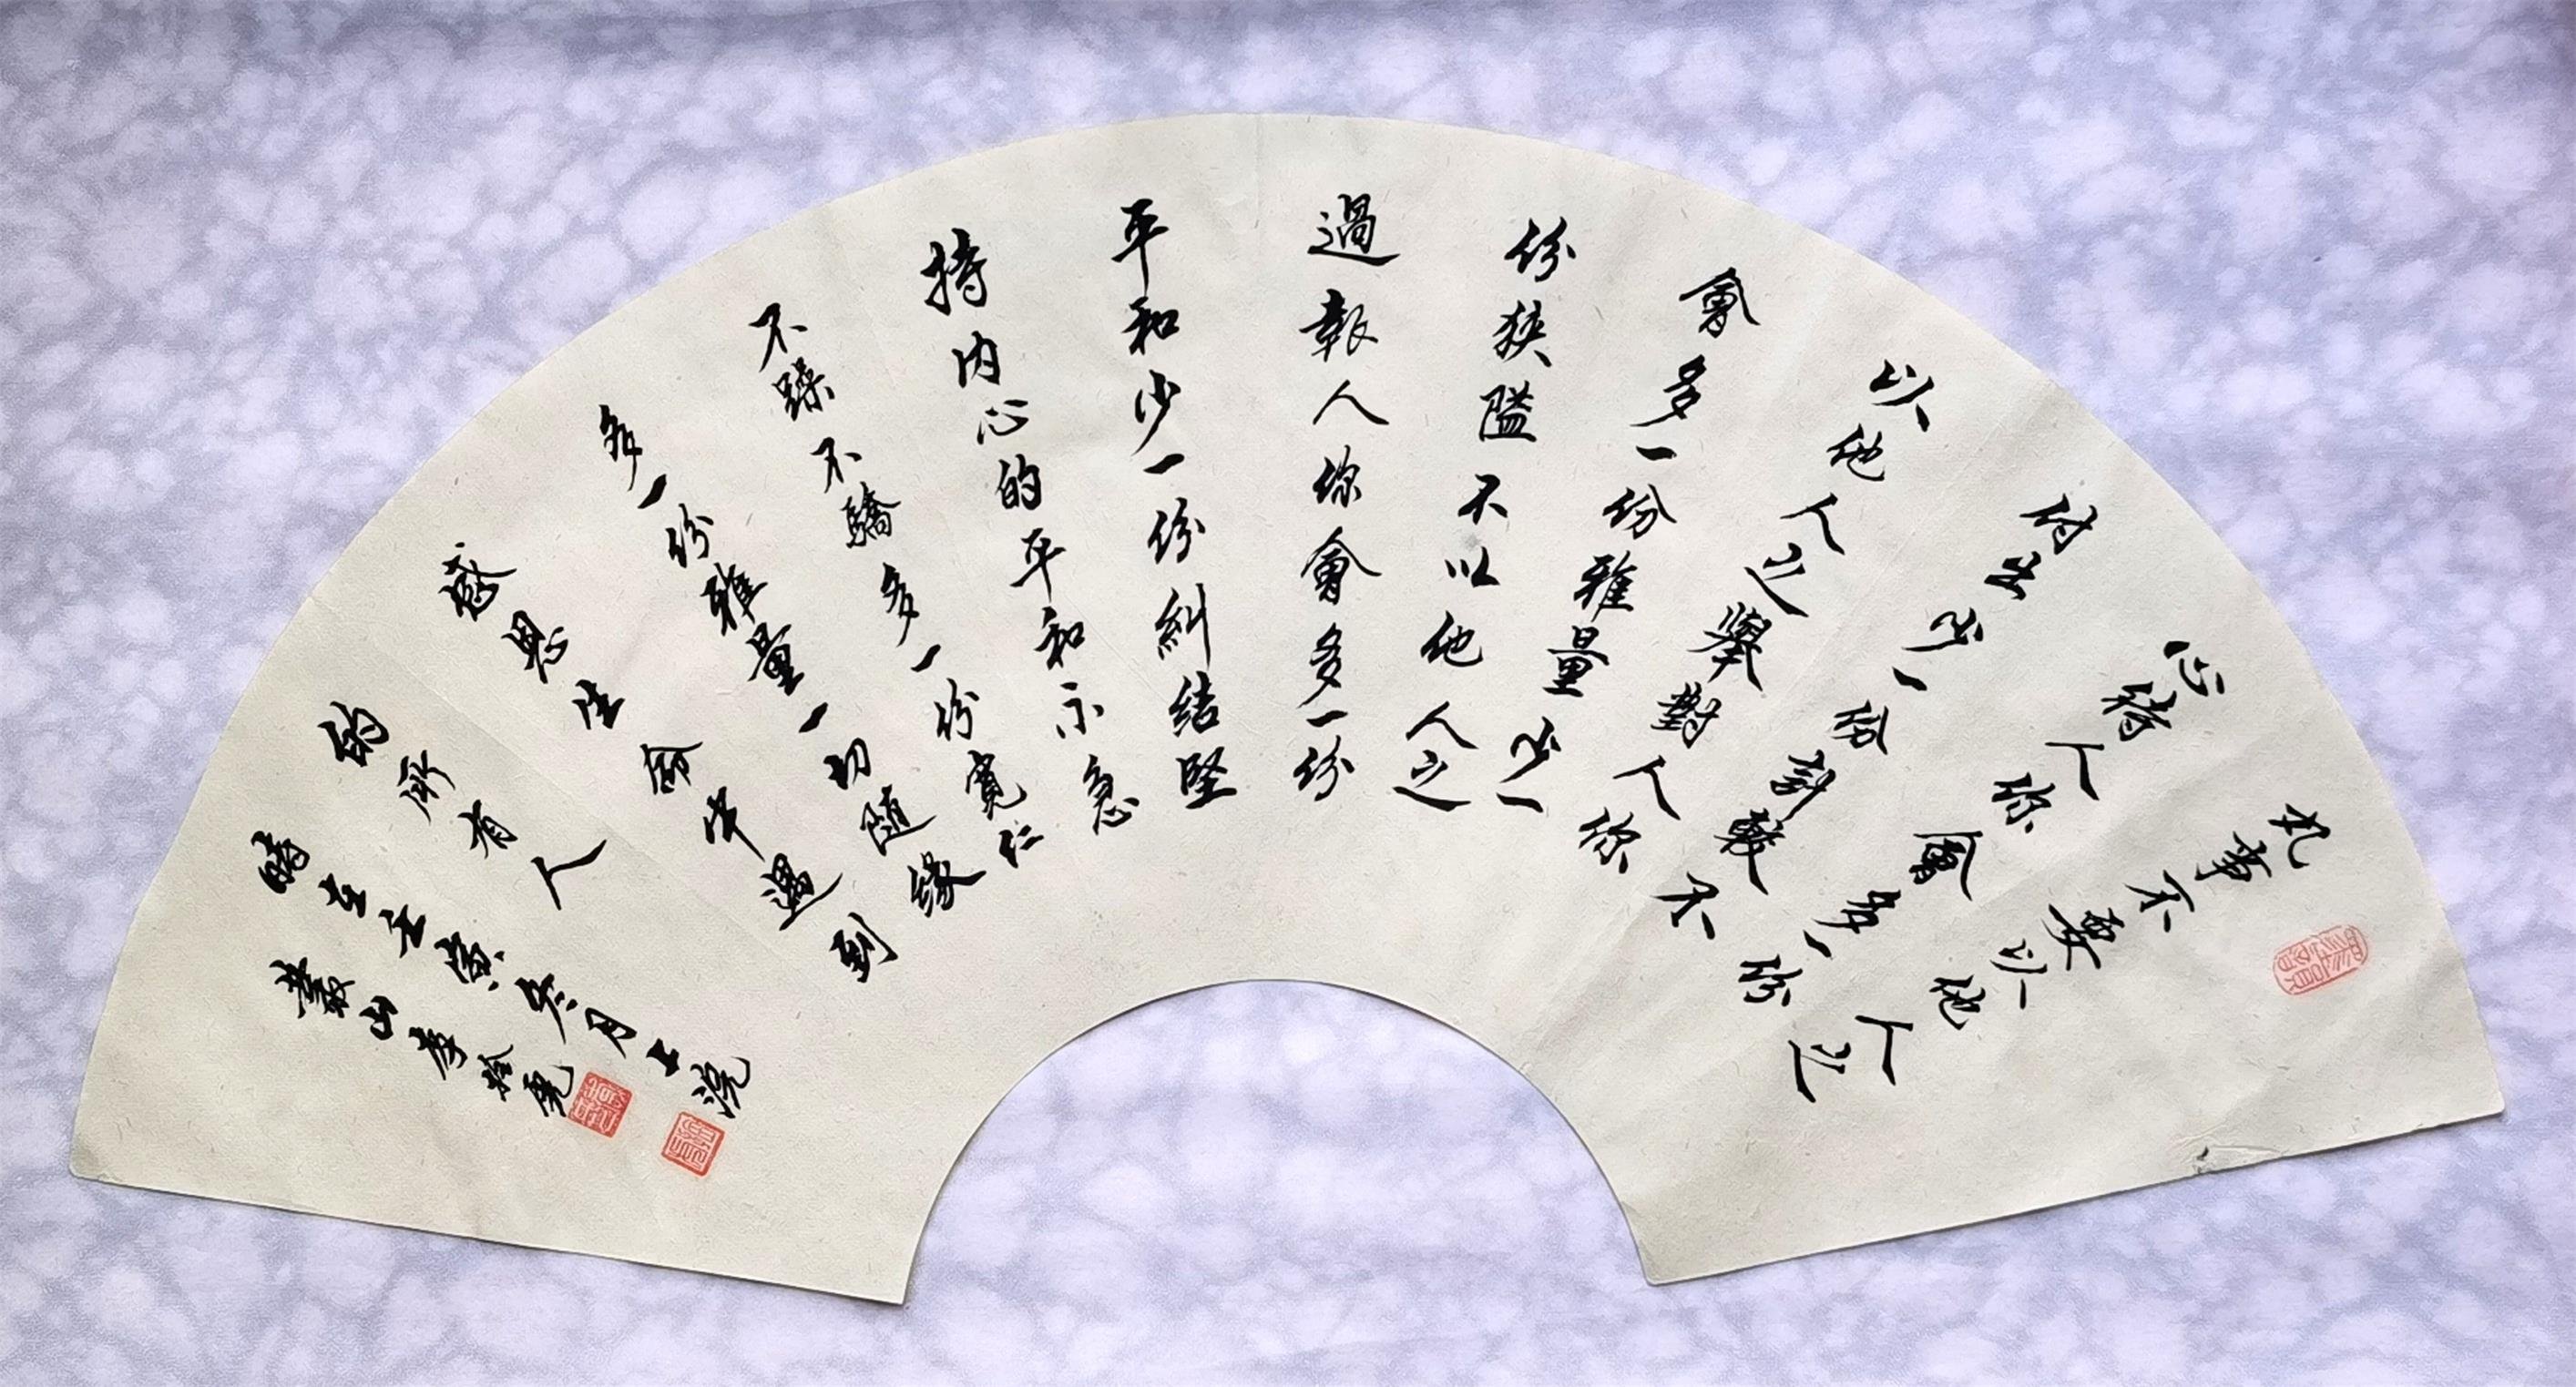 凡事不要以他人之
心待人你會多一份
付出少一份計較不
以他人之舉對人你
會多一份雅量少一
份狹隘不以他人之
過報人你會多一份
平和少一份糾結堅
持内心的平和不急
不躁不驕多一份寬仁
多一份雅量一切随緣
感恩生命中遇到
的所有人
時在壬寅冬月上浣
叢山李